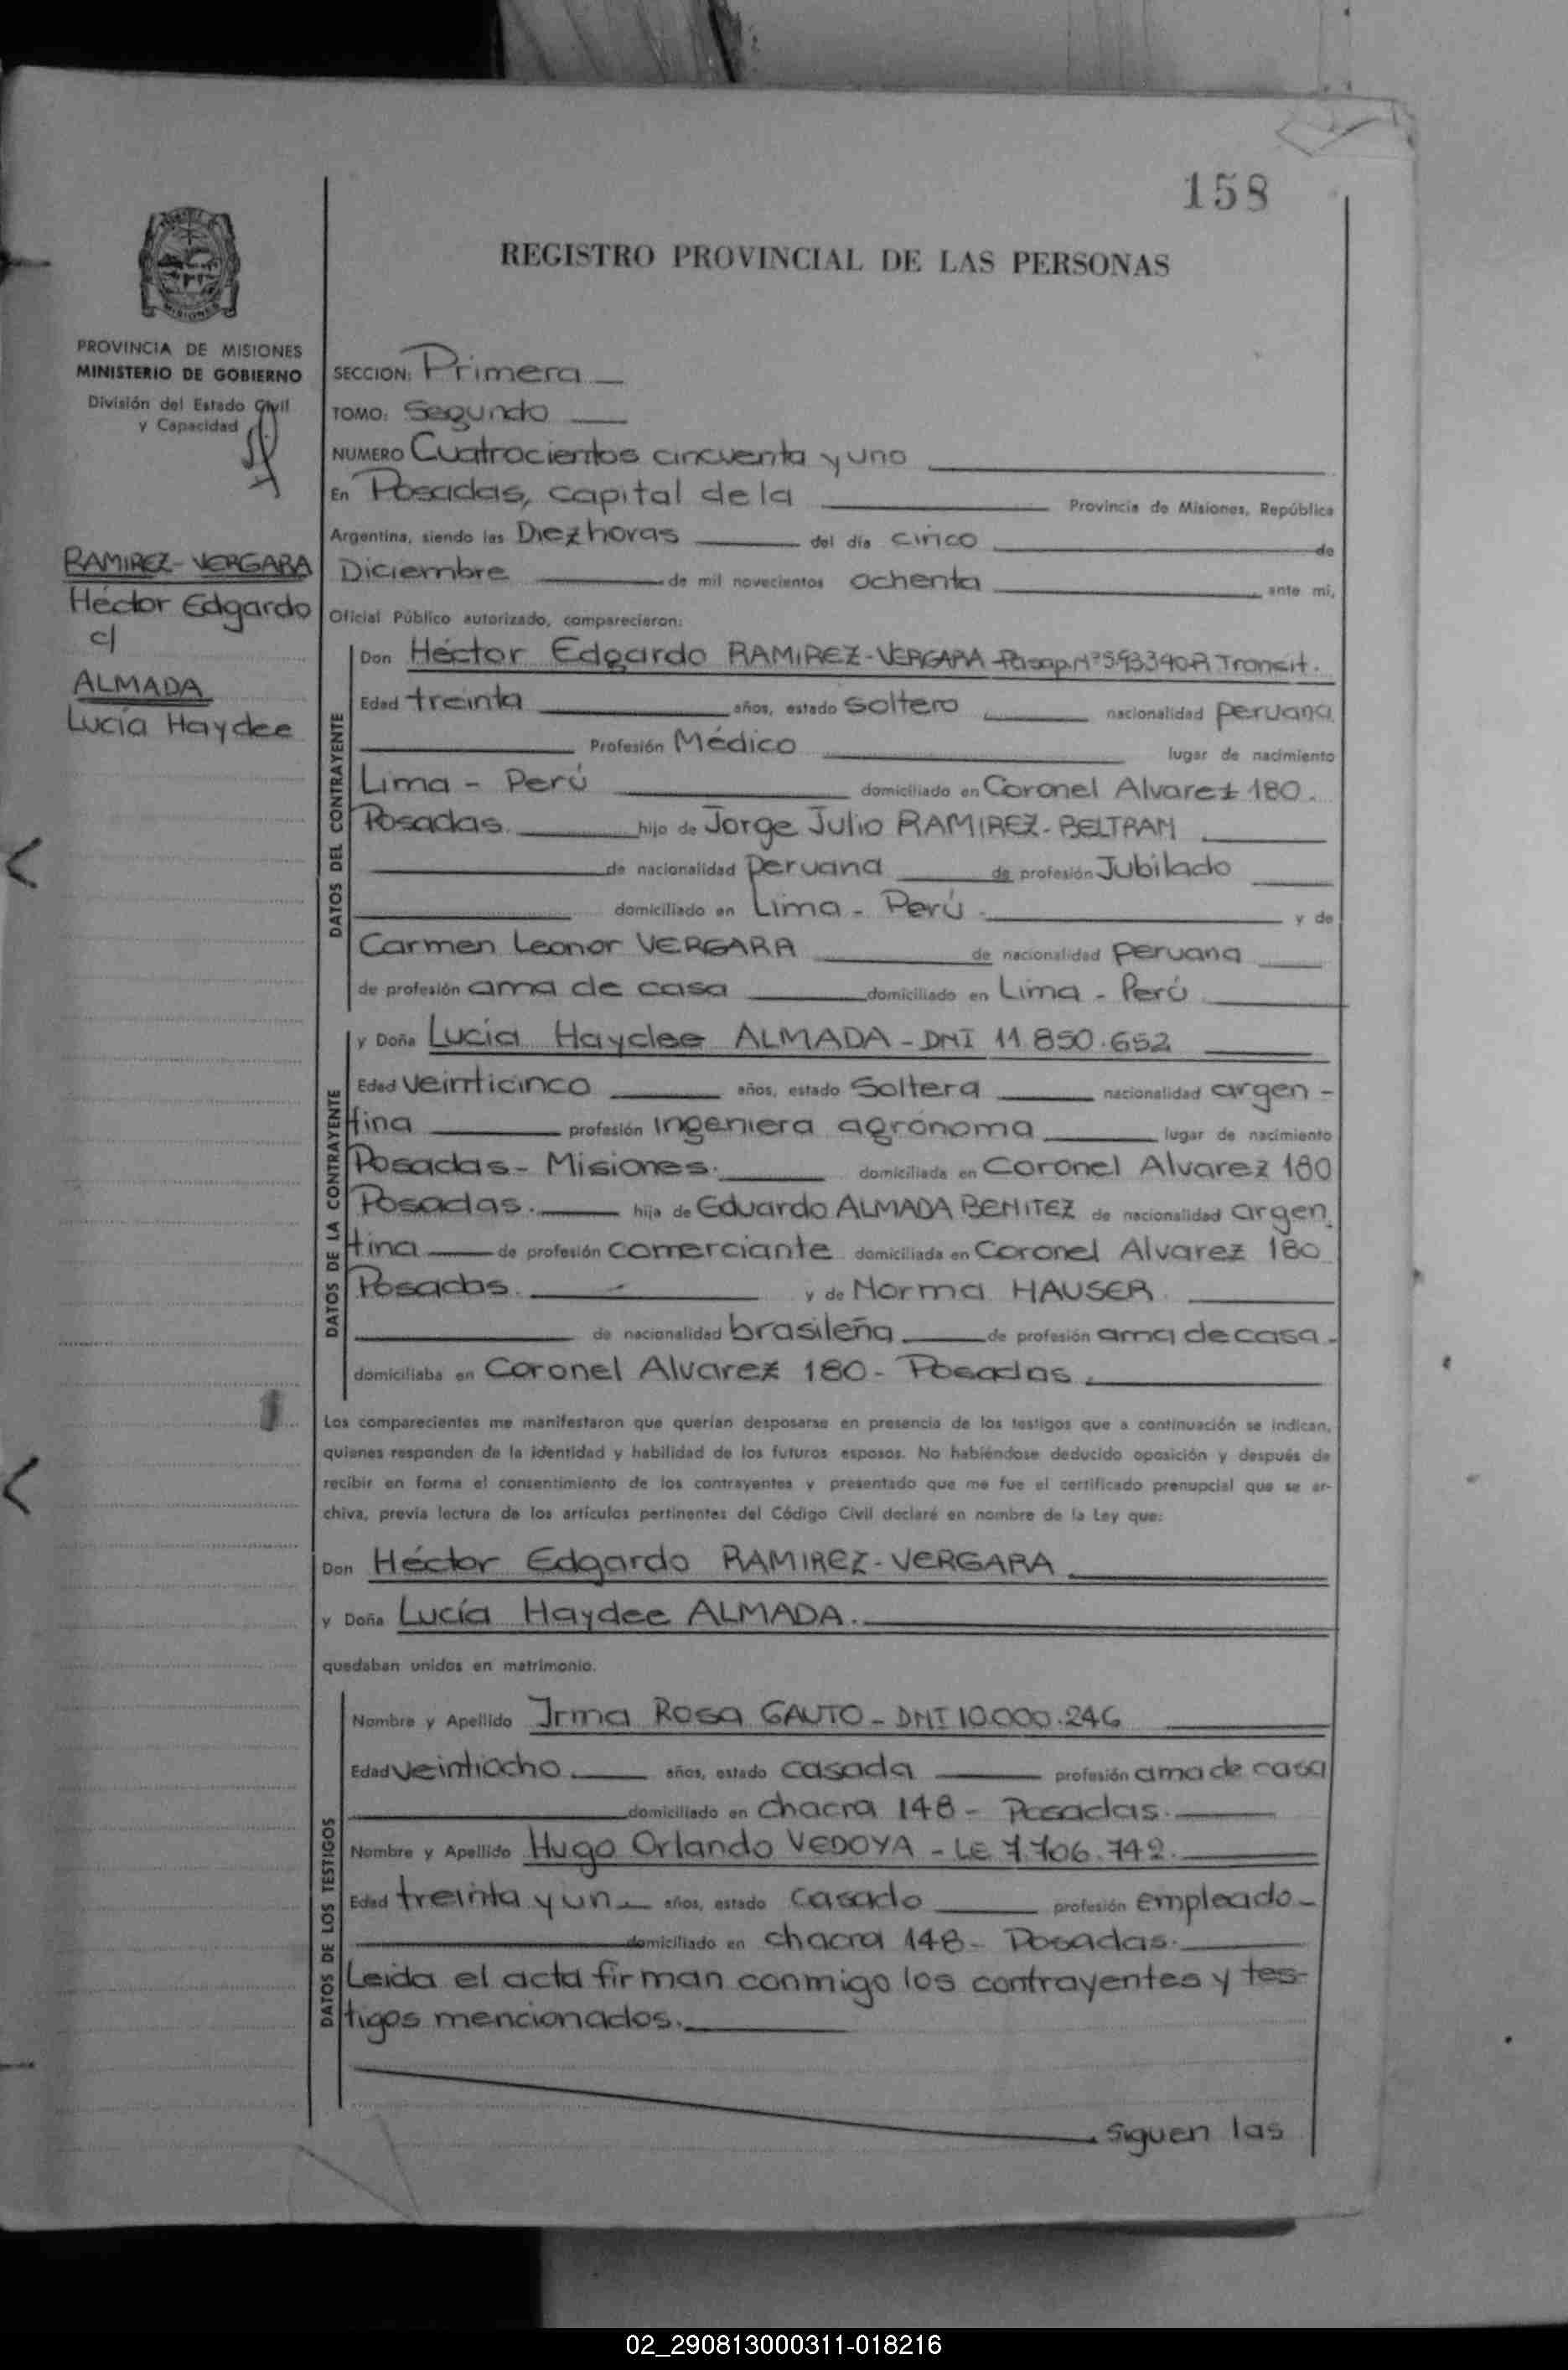 158
REGISTRO PROVINCIAL DE LAS PERSONAS
MISIONES
PROVINCIA DE MISIONES
MINISTERIO DE GOBIERNO
División del Estado Civil
y Capacidad
RAMIREZ-VERGARA
Héctor Edgardo
c/
ALMADA
Lucía Haydee
SECCION: Primera
TOMO: Segundo
NUMERO Cuatrocientos cincuenta y uno
En Posadas, capital de la Provincia de Misiones, República
Argentina, siendo las Diez horas del día cinco de
Diciembre de mil novecientos ochenta ante mi,
Oficial Público autorizado, comparecieron:
DATOS DEL CONTRAYENTE
Don Héctor Edgardo RAMIREZ-VERGARA-Pasap. Nº593390-A Transit.
Edad treinta años, estado soltero nacionalidad peruana
Profesión Médico lugar de nacimiento
Lima - Perú domiciliado en Coronel Alvarez 180.
Posadas. hijo de Jorge Julio RAMIREZ-BELTRAM
de nacionalidad peruana de profesión Jubilado
domiciliado en Lima - Perú. y de
Carmen Leonor VERGARA de nacionalidad peruana
de profesión ama de casa domiciliado en Lima - Perú
DATOS DE LA CONTRAYENTE
y Doña Lucía Haydee ALMADA - DNI 11.850.652
Edad veinticinco años, estado Soltera nacionalidad argen-
tina profesión ingeniera agrónoma lugar de nacimiento
Posadas - Misiones. domiciliada en Coronel Alvarez 180
Posadas. hija de Eduardo ALMADA BENITEZ de nacionalidad argen
tina de profesión comerciante domiciliada en Coronel Alvarez 180
Posadas. y de Norma HAUSER.
de nacionalidad brasileña de profesión ama de casa.
domiciliaba en Coronel Alvarez 180 - Posadas.
Los comparecientes me manifestaron que querían desposarse en presencia de los testigos que a continuación se indican,
quienes responden de la identidad y habilidad de los futuros esposos. No habiéndose deducido oposición y después de
recibir en forma el consentimiento de los contrayentes y presentado que me fue el certificado prenupcial que se ar-
chiva, previa lectura de los artículos pertinentes del Código Civil declaré en nombre de la Ley que:
Don Héctor Edgardo RAMIREZ-VERGARA
y Doña Lucía Haydee ALMADA.
quedaban unidos en matrimonio.
DATOS DE LOS TESTIGOS
Nombre y Apellido Irma Rosa GAUTO - DNI 10.000.246
Edad veintiocho años, estado casada profesión ama de casa
domiciliado en chacra 148 - Posadas.
Nombre y Apellido Hugo Orlando VEDOYA - LE 7.706.742.
Edad treinta y un años, estado casado profesión empleado-
domiciliado en chacra 148 - Posadas.
Leída el acta firman conmigo los contrayentes y tes-
tigos mencionados.
Siguen las
02_290813000311-018216